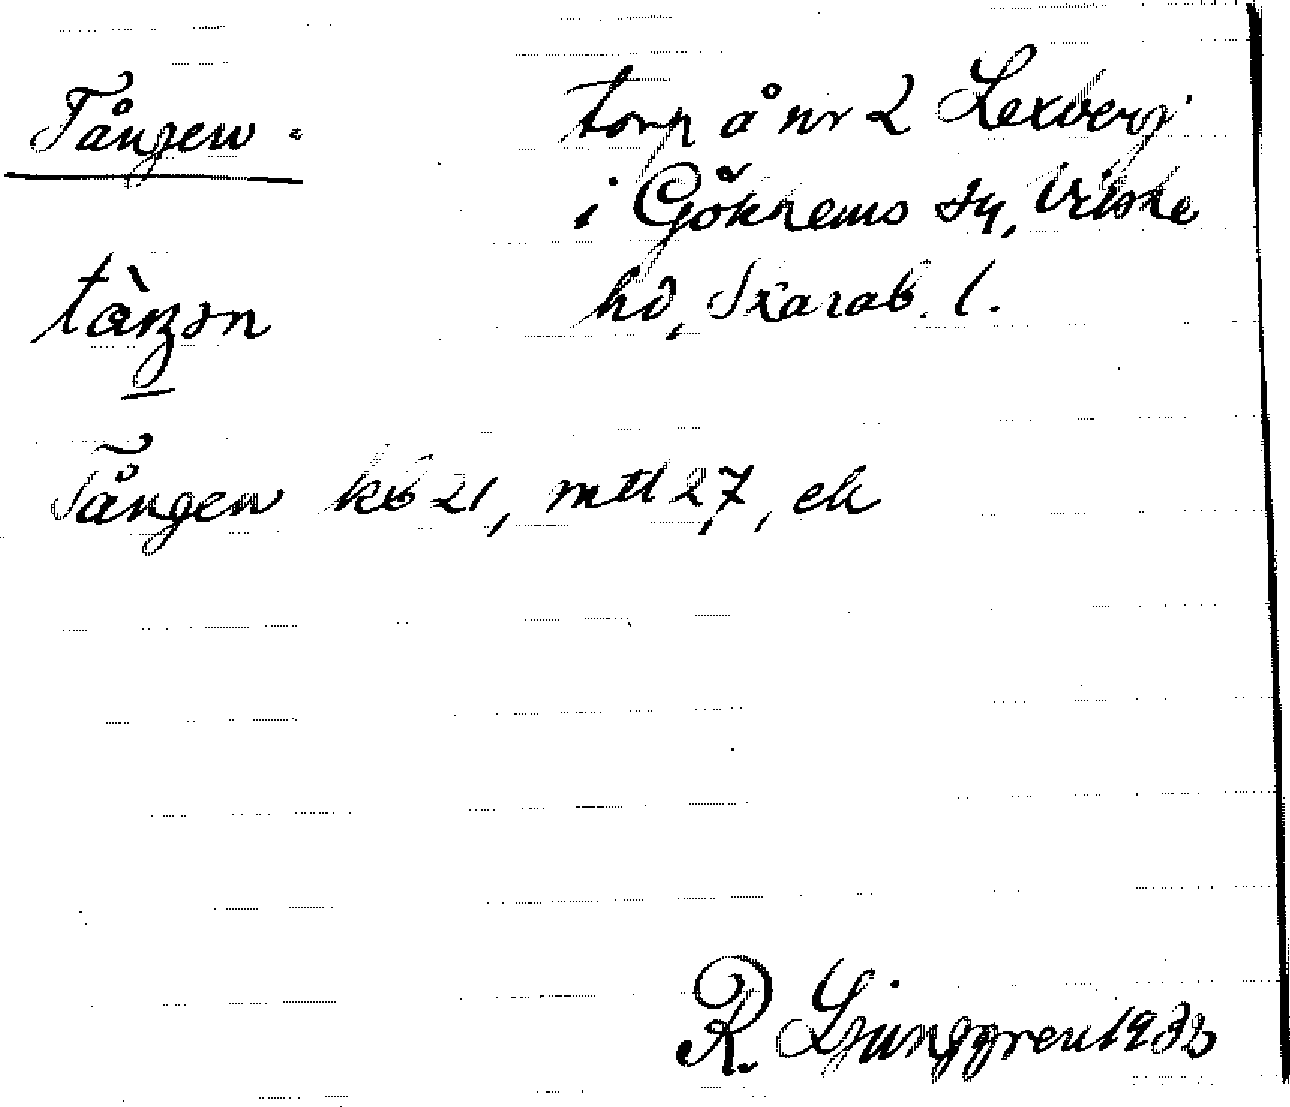 Tången.
torp å nr 2 Lexberg
i Gökhems sn, Vilske
hd, Skarab. l.
Tången kb 21, mtl 27, ek
R. Ljunggren 1933